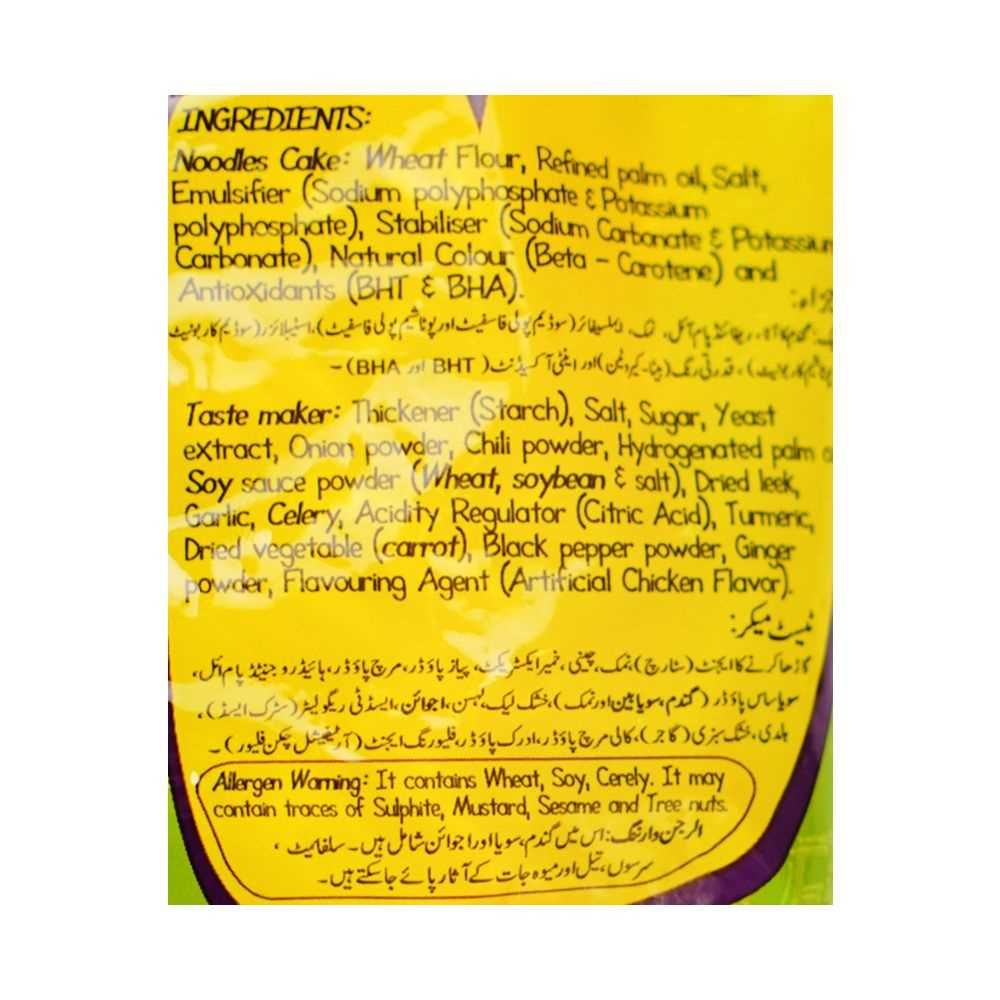 INGREDIENTS:
Noodles Cake: Wheat Flour, Refined palm oil, Salt,
Emulsifier (Sodium polyphosphate & Potassium
polyphosphate), Stabiliser (Sodium Carbonate & Potassium
Carbonate), Natural Colour (Beta - Carotene) and
Antioxidants (BHT & BHA).
پام آئل، نمک، ایملسیفائر (سوڈیم پولی فاسفیٹ اور پوٹاشیم پولی فاسفیٹ)، اسٹیبلائزر (سوڈیم کاربونیٹ
، قدرتی رنگ (بیٹا-کیروٹین) اور اینٹی آکسیڈنٹ (BHT اور BHA)-
Taste maker: Thickener (Starch), Salt, Sugar, Yeast
extract, Onion powder, Chili powder, Hydrogenated palm
Soy sauce powder (Wheat, soybean & salt), Dried leek,
Garlic, Celery, Acidity Regulator (Citric Acid), Turmeric,
Dried vegetable (carrot), Black pepper powder, Ginger
powder, Flavouring Agent (Artificial Chicken Flavor).
ٹیسٹ میکر:
گاڑھا کرنے کا ایجنٹ (سٹارچ)، نمک، چینی، خمیر ایکسٹریکٹ، پیاز پاؤڈر، مرچ پاؤڈر، ہائیڈروجنیٹڈ پام آئل،
سویا ساس پاؤڈر (گندم، سویابین اور نمک)، خشک لیک، لہسن، اجوائن، ایسڈٹی ریگولیٹر (سٹرک ایسڈ)،
ہلدی، خشک سبزی (گاجر)، کالی مرچ پاؤڈر، ادرک پاؤڈر، فلیورنگ ایجنٹ (آرٹیفیشل چکن فلیور)۔
Allergen Warning: It contains Wheat, Soy, Cerely. It may
contain traces of Sulphite, Mustard, Sesame and Tree nuts.
الرجن وارننگ: اس میں گندم، سویا اور اجوائن شامل ہیں۔ سلفائیٹ،
سرسوں، تیل اور میوہ جات کے آثار پائے جا سکتے ہیں۔